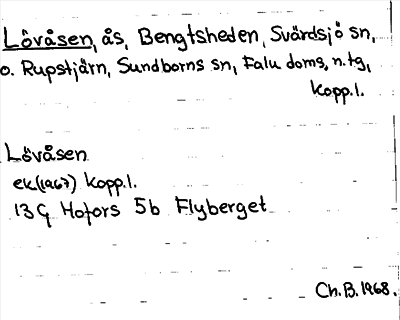 Lövåsen, ås, Bengtsheden, Svärdsjö sn,
o. Rupstjärn, Sundborns sn, Falu doms. n. tg,
Kopp. l.
Lövåsen
ek(1967) Kopp. l.
13 G Hofors 5b Flyberget
Ch. B. 1968.